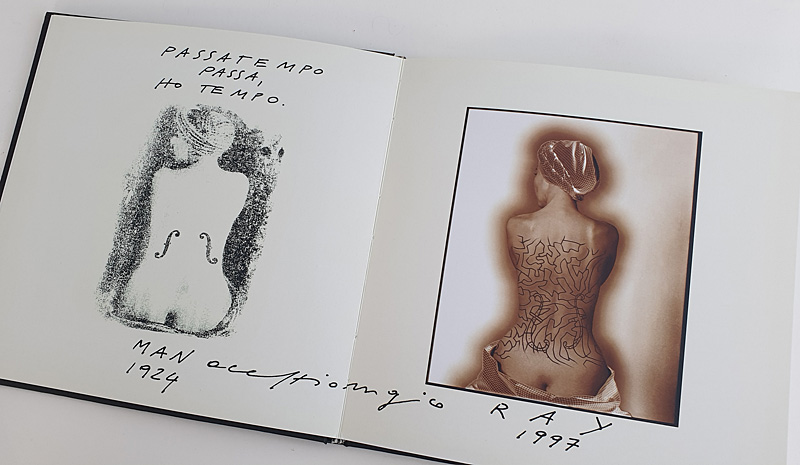 PASSATEMPO
PASSA,
HO TEMPO.
MAN
1924
RAY
1997